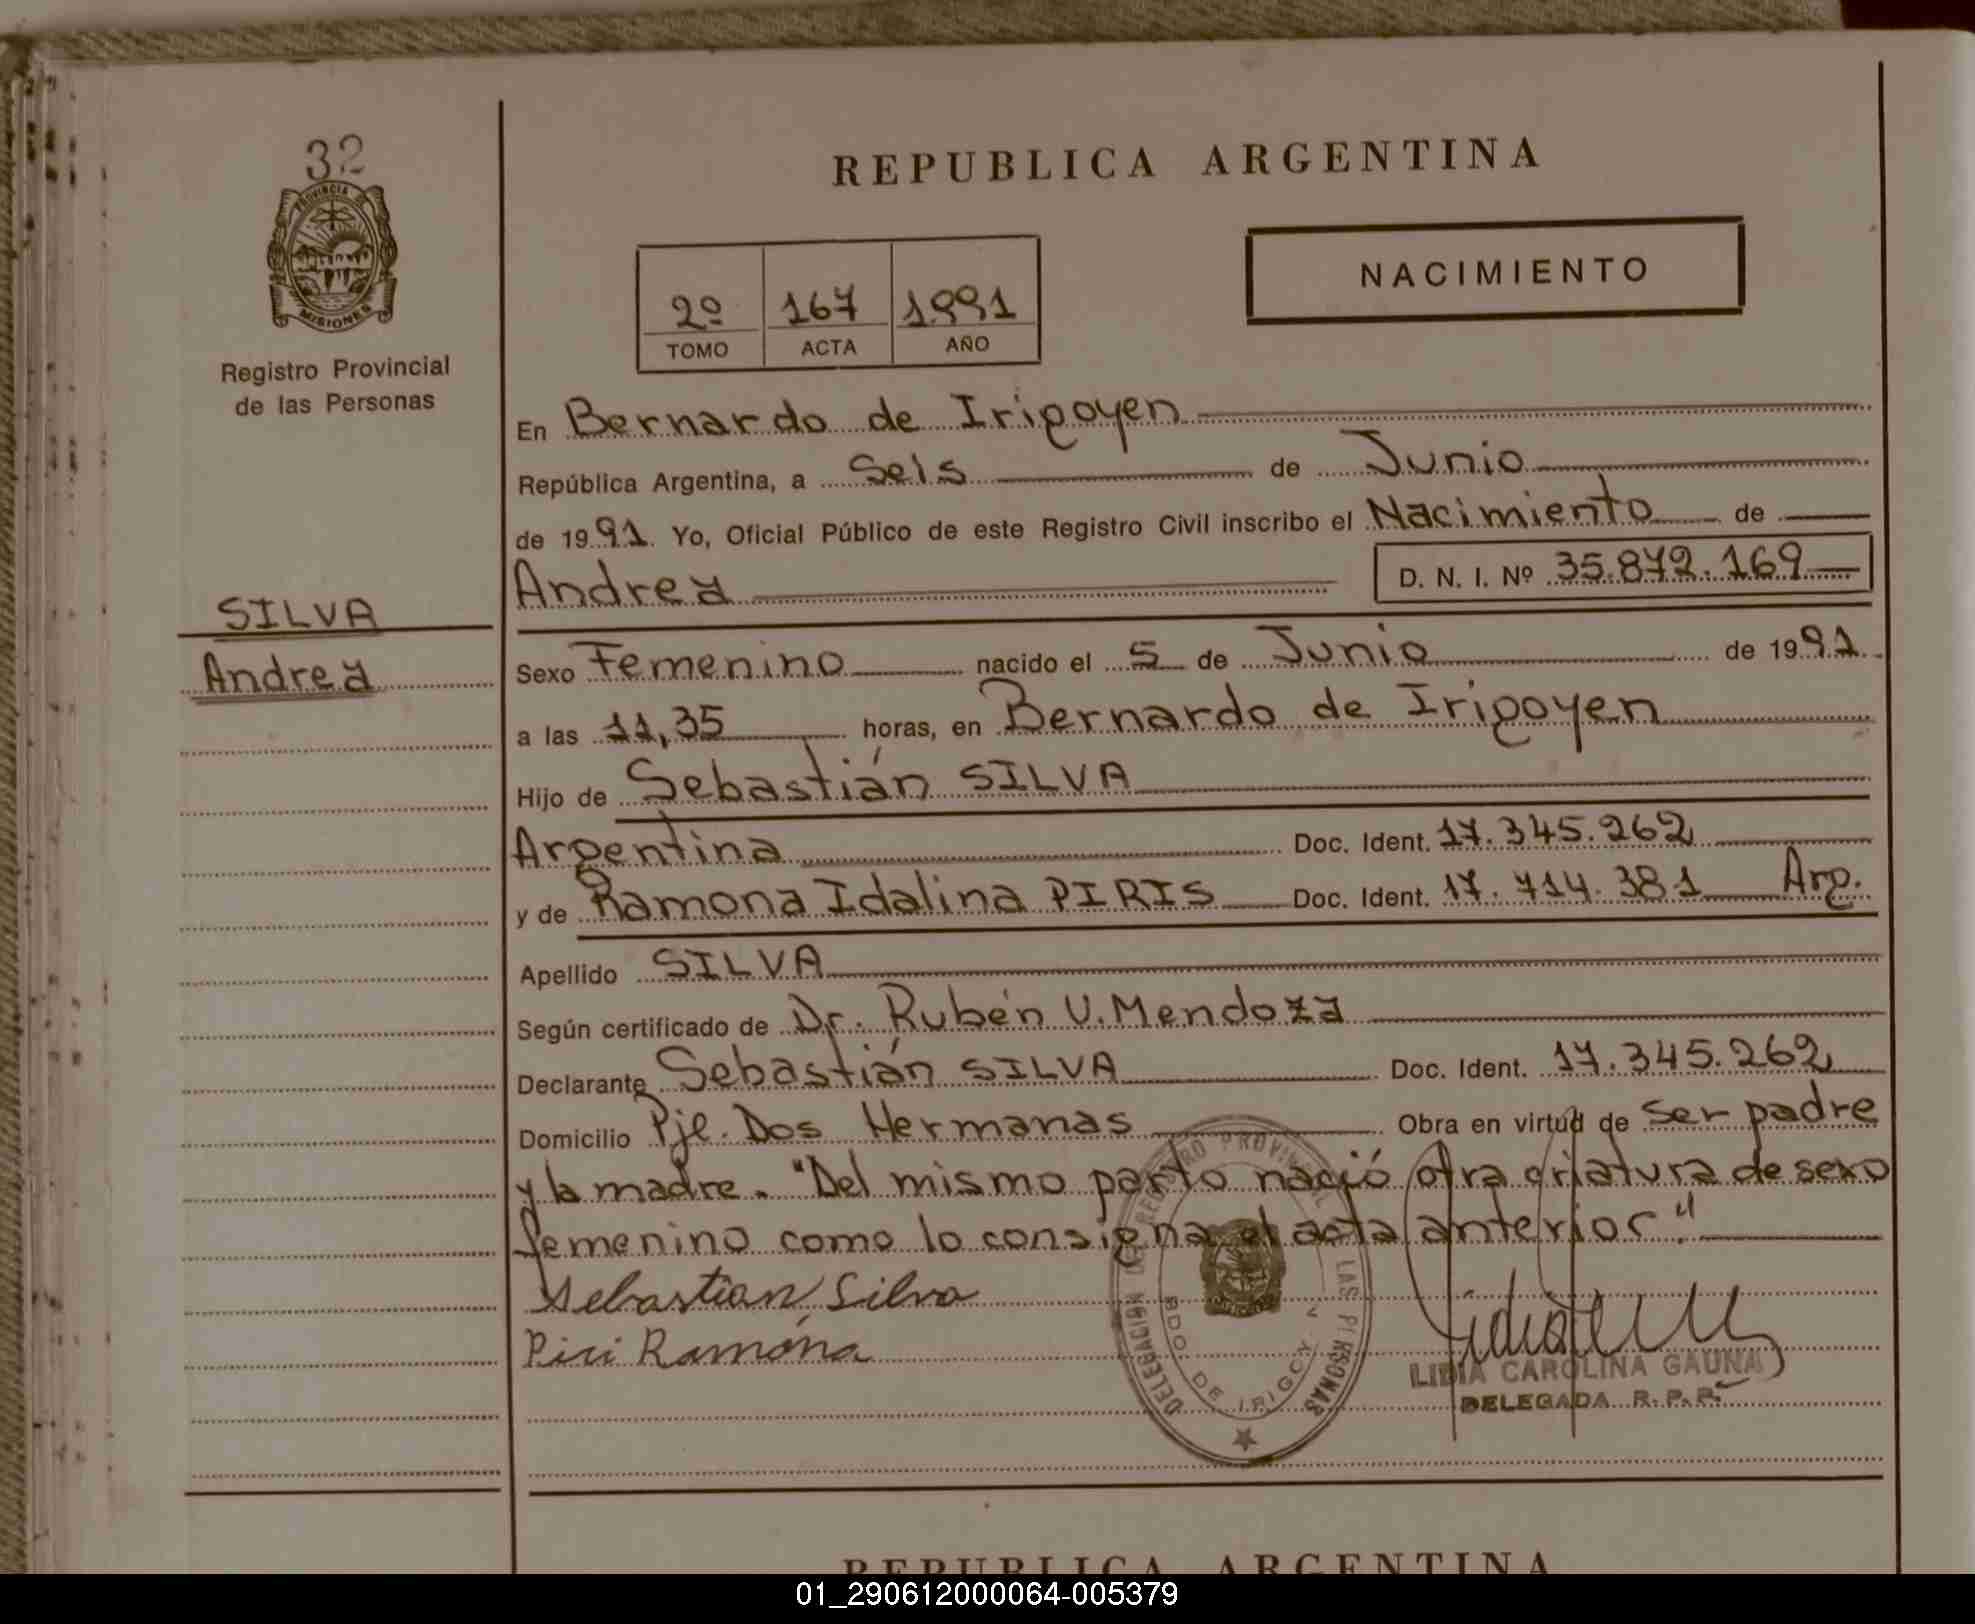 32
PROVINCIA DE
MISIONES
Registro Provincial
de las Personas
SILVA
Andrea
REPUBLICA ARGENTINA
2º 167 1991
TOMO ACTA AÑO
NACIMIENTO
En Bernardo de Irigoyen
República Argentina, a Seis de Junio
de 1991. Yo, Oficial Público de este Registro Civil inscribo el Nacimiento de
Andrea D. N. I. Nº 35.872.169
Sexo Femenino nacido el 5 de Junio de 1991
a las 11,35 horas, en Bernardo de Irigoyen
Hijo de Sebastián SILVA
Argentina Doc. Ident. 17.345.262
y de Ramona Idalina PIRIS Doc. Ident. 17.714.381 Arg.
Apellido SILVA
Según certificado de Dr. Rubén U. Mendoza
Declarante Sebastián SILVA Doc. Ident. 17.345.262
Domicilio Pje. Dos Hermanas Obra en virtud de ser padre
y la madre. "Del mismo parto nació otra criatura de sexo
femenino como lo consigna el acta anterior."
Sebastian Silva
Piri Ramóna
DELEGACION DEL REGISTRO PROVINCIAL LAS PERSONAS
BDO. DE IRIGOY
LIDIA CAROLINA GAUNA
DELEGADA R. P. P.
REPUBLICA ARGENTINA
01_290612000064-005379